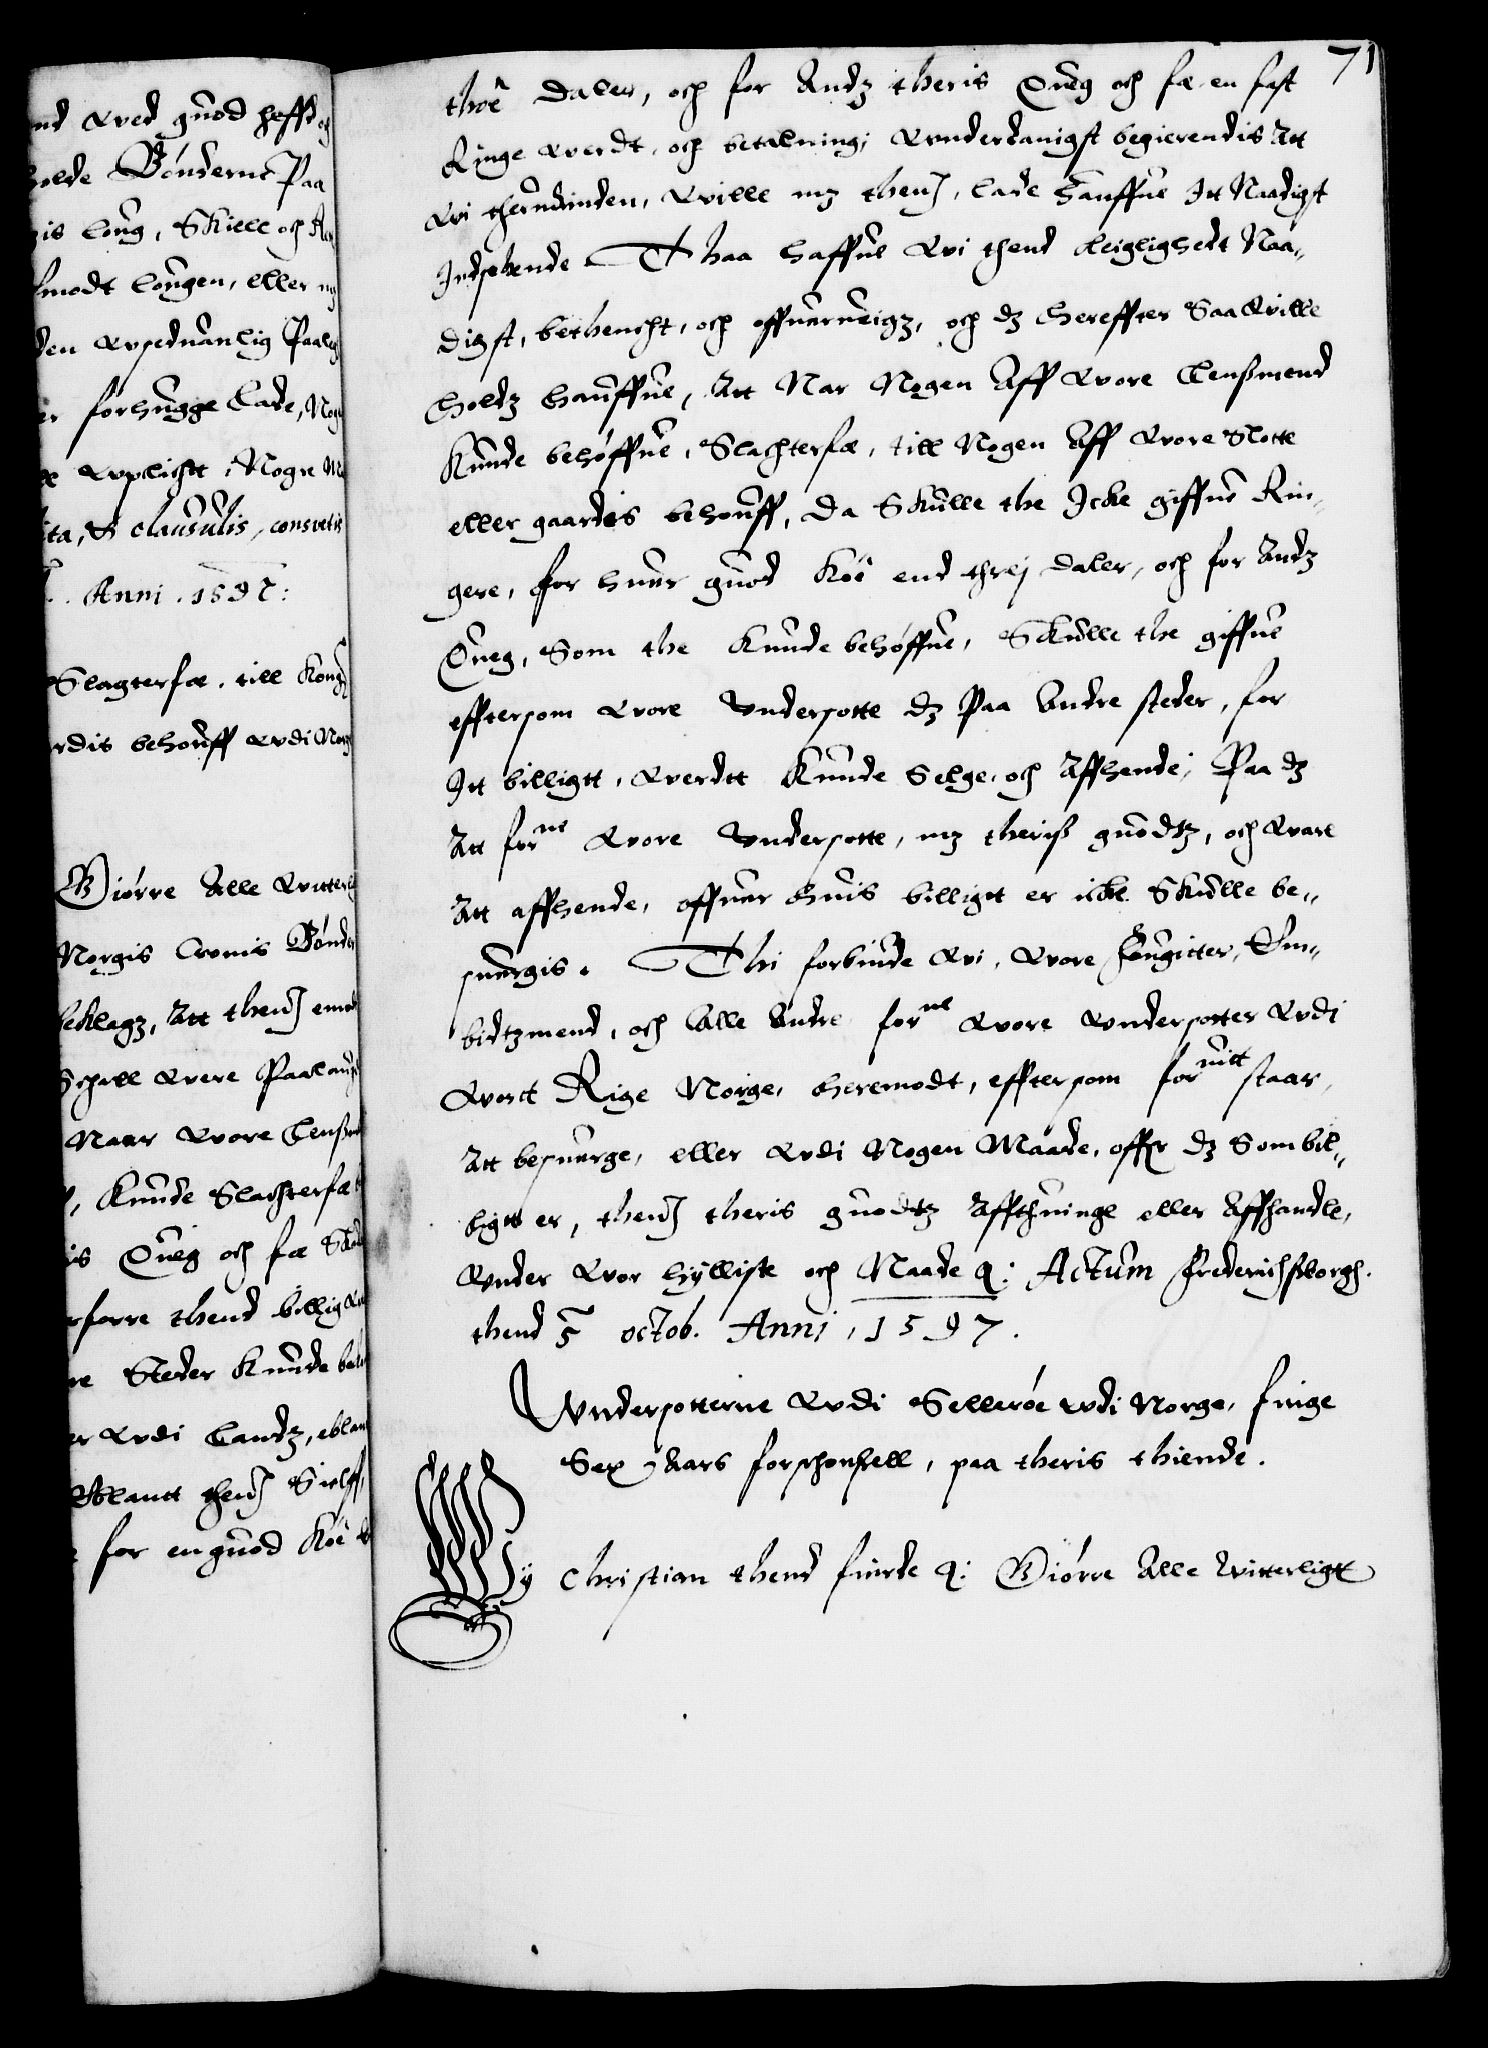 nd wed guod heffd och
holde Bønderne Paa
is loug, Skiell och
modt lougen, eller
den wsedvanlig Paaleg
er forhugge Lade, Nogen
wplicht, Nogre
ita, & clausulis, consvetis
Anni. 1597:
Slagterfæ, till Kong
rdis behouff wdi Norg
Giørre Alle Witterlig
Norgis Cronis Bønder
beklagz, Att thennom emod
Schall were Paalaugt
Naar wore Lenßmend
Kunde Slachterfæ
is Queg och fæ Skulle
rforre thend billig
re Steder Kunde
er wdi Landz, iblant
Iblantt thennom Sielff,
for en guod Koe
71
thoe Daler, och for Andz theris Queg och fæ en fast
Ringe werdt, och betalning, wnderdanigst begierendis Att
wi therudinden, wille mz thennom, lade hauffue Itt Naadigst
Indseende. Thaa haffue wi thend leiglighedt Naa-
digst, bethencht, och offueruigz, och dz hereffter Saa wille
holdz hauffue, Att Nar Nogen Aff wore Lenßmend
Kunde behøffue, Slachterfæ, till Nogen Aff wore Slotte
eller gaardis behouff, da Skulle the Icke giffue Rin-
gere, for huer guod Koe end threj Daler, och for Andz
Queg, Som the Kunde behøffue, Skulle the giffue
efftersom wore Undersotte dz Paa Andre steder, for
Itt billigtt, werdtt Kunde Selge, och Affhende, Paa dz
Att forne wore Undersotte, mz theriß guodtz, och ware
Att affhende, offuer huis billigt er icke Skulle be-
suergis. Thi forbiude wi, wore Fougitter, Em-
bidtzmend, och Alle Andre forne wore Undersotter wdi
wort Rige Norge, heremodt, efftersom foruitt staar,
Att besuerge, eller wdi Nogen Maade, offr dz Sombil-
ligtt er, thennom theris guodtz Affthuinge eller Affhandle,
Under wor hylliste och Naade q: Actum Frederichßborgh.
thend 5 octob. Anni, 1597.
Undersotterne wdi Sellerøe wdi Norge, finge
Sex Aars forschonsell, paa theris thiende.
Wy Christian thend fierde q: Giørre Alle Witterligtt